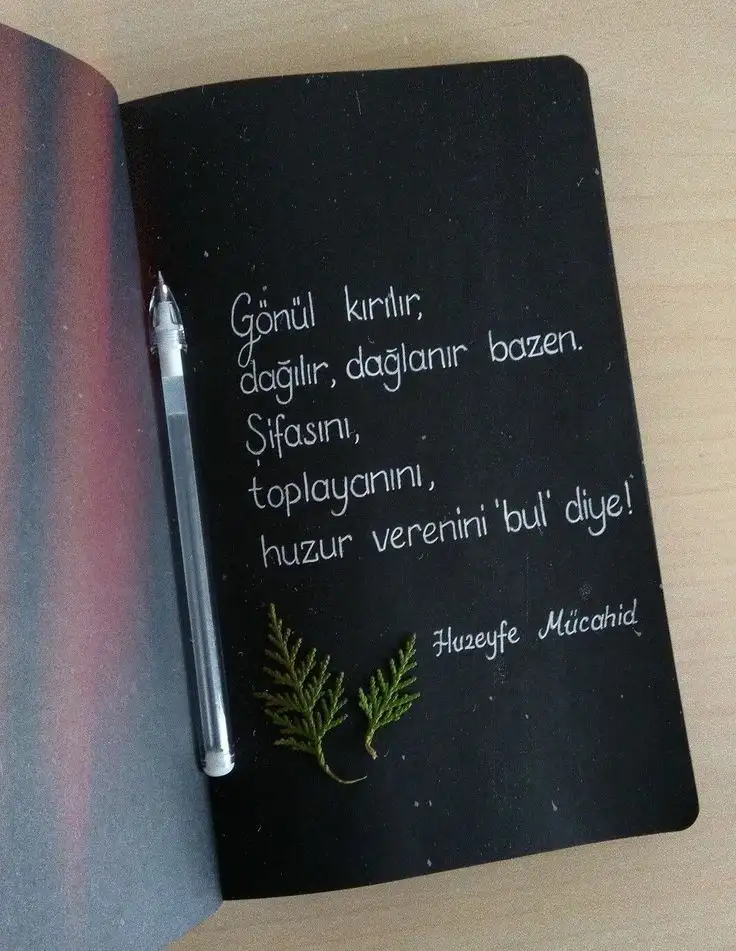 Gönül kırılır,
dağılır, dağlanır bazen.
Şifasını,
toplayanını,
huzur verenini 'bul' diye!
Huzeyfe Mücahid